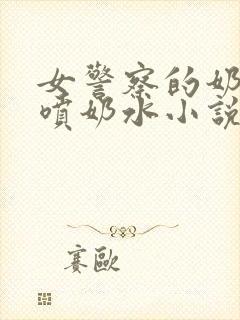 女警察的奶
噴奶水小說
賽歐